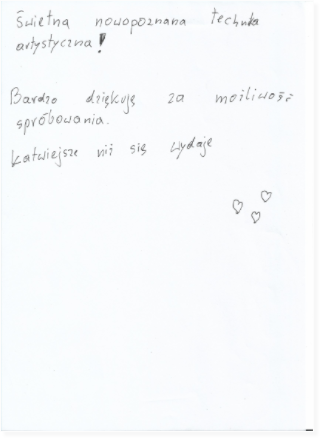 Świetna nowopoznana technika
artystyczna!
Bardzo dziękuję za możliwość
spróbowania.
Łatwiejsze niż się wydaje